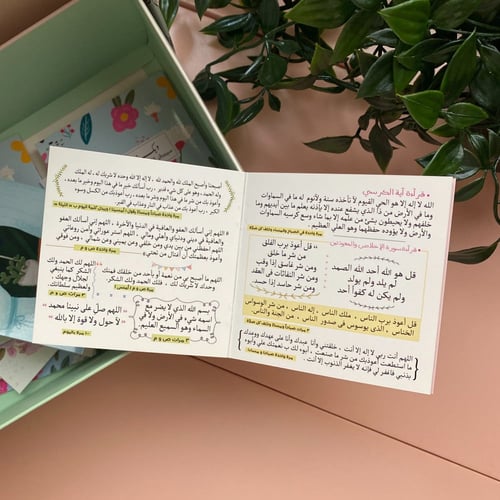 قراءة آية الكرسي
الله لا إله إلا هو الحي القيوم لا تأخذه سنة ولانوم له ما في السماوات
وما في الأرض من ذا الذي يشفع عنده إلا بإذنه يعلم ما بين أيديهم وما
خلفهم ولا يحيطون بشئ من علمه إلا بما شاء وسع كرسيه السماوات
والأرض ولا يؤوده حفظهما وهو العلي العظيم.
قراءة سورة الإخلاص والمعوذتين
قل هو الله أحد الله الصمد
لم يلد ولم يولد
ولم يكن له كفوا أحد
قل أعوذ برب الفلق
من شر ما خلق
ومن شر غاسق إذا وقب
ومن شر النفاثات في العقد
ومن شر حاسد إذا حسد
قل أعوذ برب الناس ، ملك الناس ، إله الناس ، من شر الوسواس
الخناس ، الذي يوسوس في صدور الناس ، من الجنة والناس.
اللهم أنت ربي لا إله إلا أنت ، خلقتني وأنا عبدك وأنا على عهدك ووعدك
ما استطعت أعوذبك من شر ما صنعت ، أبوء لك ب نعمتك علي وأبوء
بذنبي فاغفر لي فإنه لا يغفر الذنوب إلا أنت.
أصبحنا وأصبح الملك لله والحمد لله ، لا إله إلا الله وحده لا شريك له ، له الملك
وله الحمد ، وهو على كل شئ قدير ، رب أسألك خير ما في هذا اليوم وخير ما بعده ،
وأعوذ بك من شر ما في هذا اليوم وشر ما بعده ، رب أعوذبك من الكسل وسوء
الكبر ، رب أعوذ بك من عذاب في النار وعذاب في القبر.
اللهم إني أسألك العفو والعافية في الدنيا والآخرة ، اللهم إني أسألك العفو
والعافية في ديني ودنياي وأهلي ومالي ، اللهم استر عوراتي وآمن روعاتي
اللهم احفظني من بين يدي ومن خلفي وعن يميني وعن شمالي ، ومن فوقي
وأعوذ بعظمتك أن أغتال من تحتي
اللهم ما أصبح بي من نعمة أو بأحد من خلقك فمنك
وحدك لا شريك لك
اللهم لك الحمد ولك
الشكر كما ينبغي
لجلال وجهك
وعظيم سلطانك.
بسم الله الذي لا يضر مع
اسمه شيء في الأرض ولا في
السماء وهو السميع العليم.
٣ مرات ص و م
اللهم صل على نبينا محمد
ولا حول ولا قوة إلا بالله